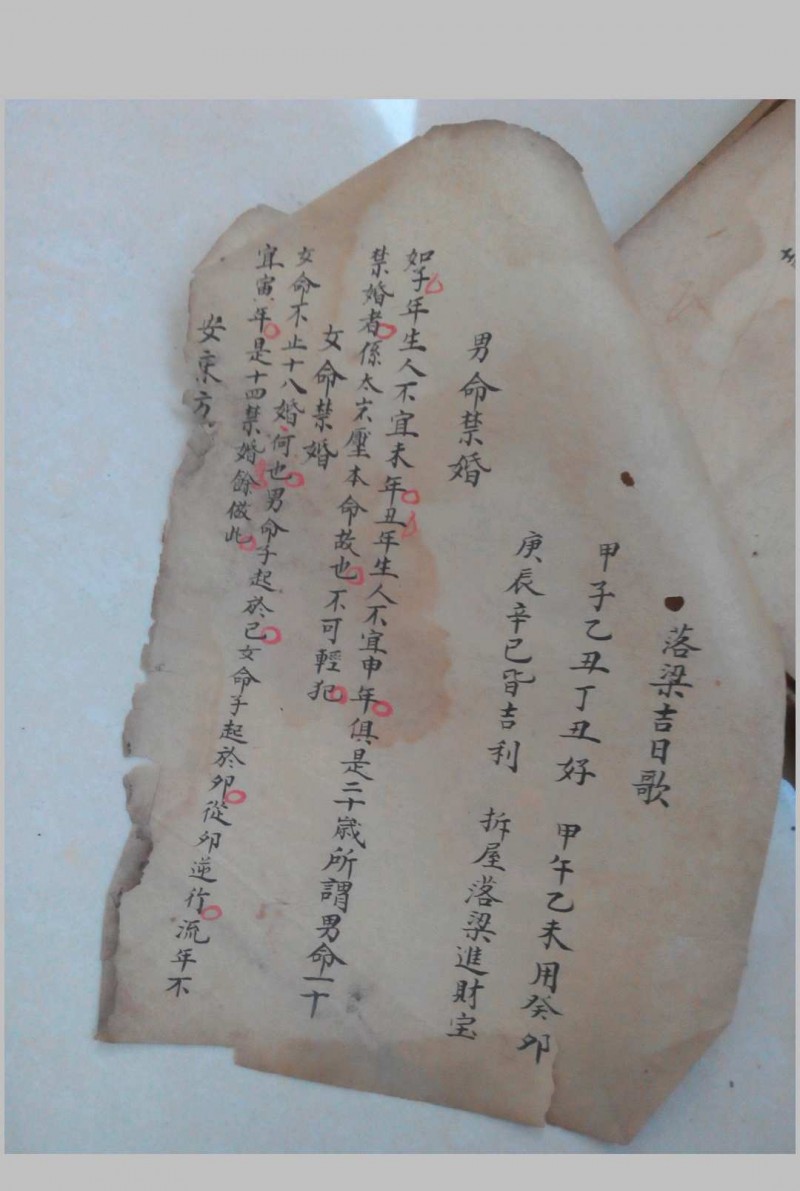 落梁吉日歌
甲子乙丑丁丑好 甲午乙未用癸卯
庚辰辛巳皆吉利 拆屋落梁進財宝
男命禁婚
如子年生人不宜未年丑年生人不宜申年俱是二十歲所謂男命二十
禁婚者係太岁壓本命故也不可輕犯
女命禁婚
女命不止十八婚何也男命子起於巳女命子起於卯從卯逆行流年不
宜寅年是十四禁婚餘倣此
安東方